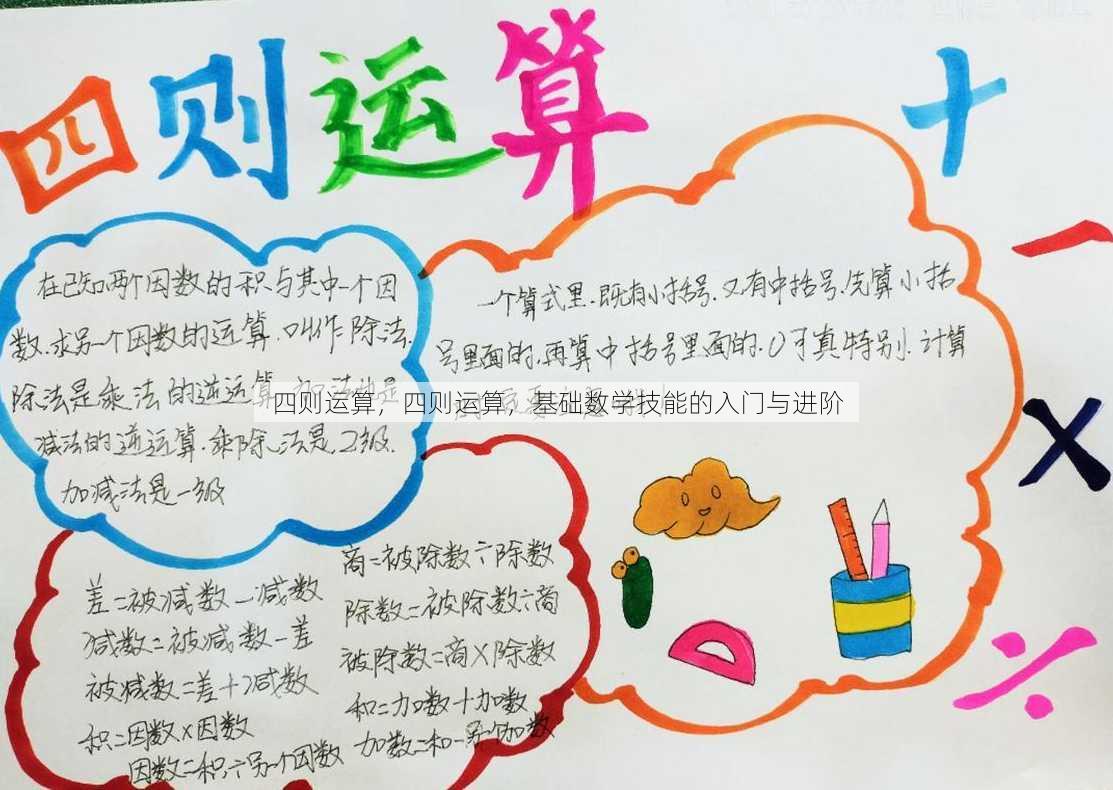 四则运算
+
-
×
÷
在已知两个因数的积与其中一个因
数.求另一个因数的运算.叫作除法.
除法是乘法的逆运算
减法的逆运算.乘除法是2级.
加减法是一级
一个算式里.既有小括号.又有中括号.先算小括
号里面的.再算中括号里面的.()可真特别.计算
四则运算，四则运算，基础数学技能的入门与进阶
差=被减数-减数
减数=被减数-差
被减数=差+减数
积=因数×因数
因数=积÷另一个因数
商=被除数÷除数
除数=被除数÷商
被除数=商×除数
和=加数+加数
加数=和-另一个加数